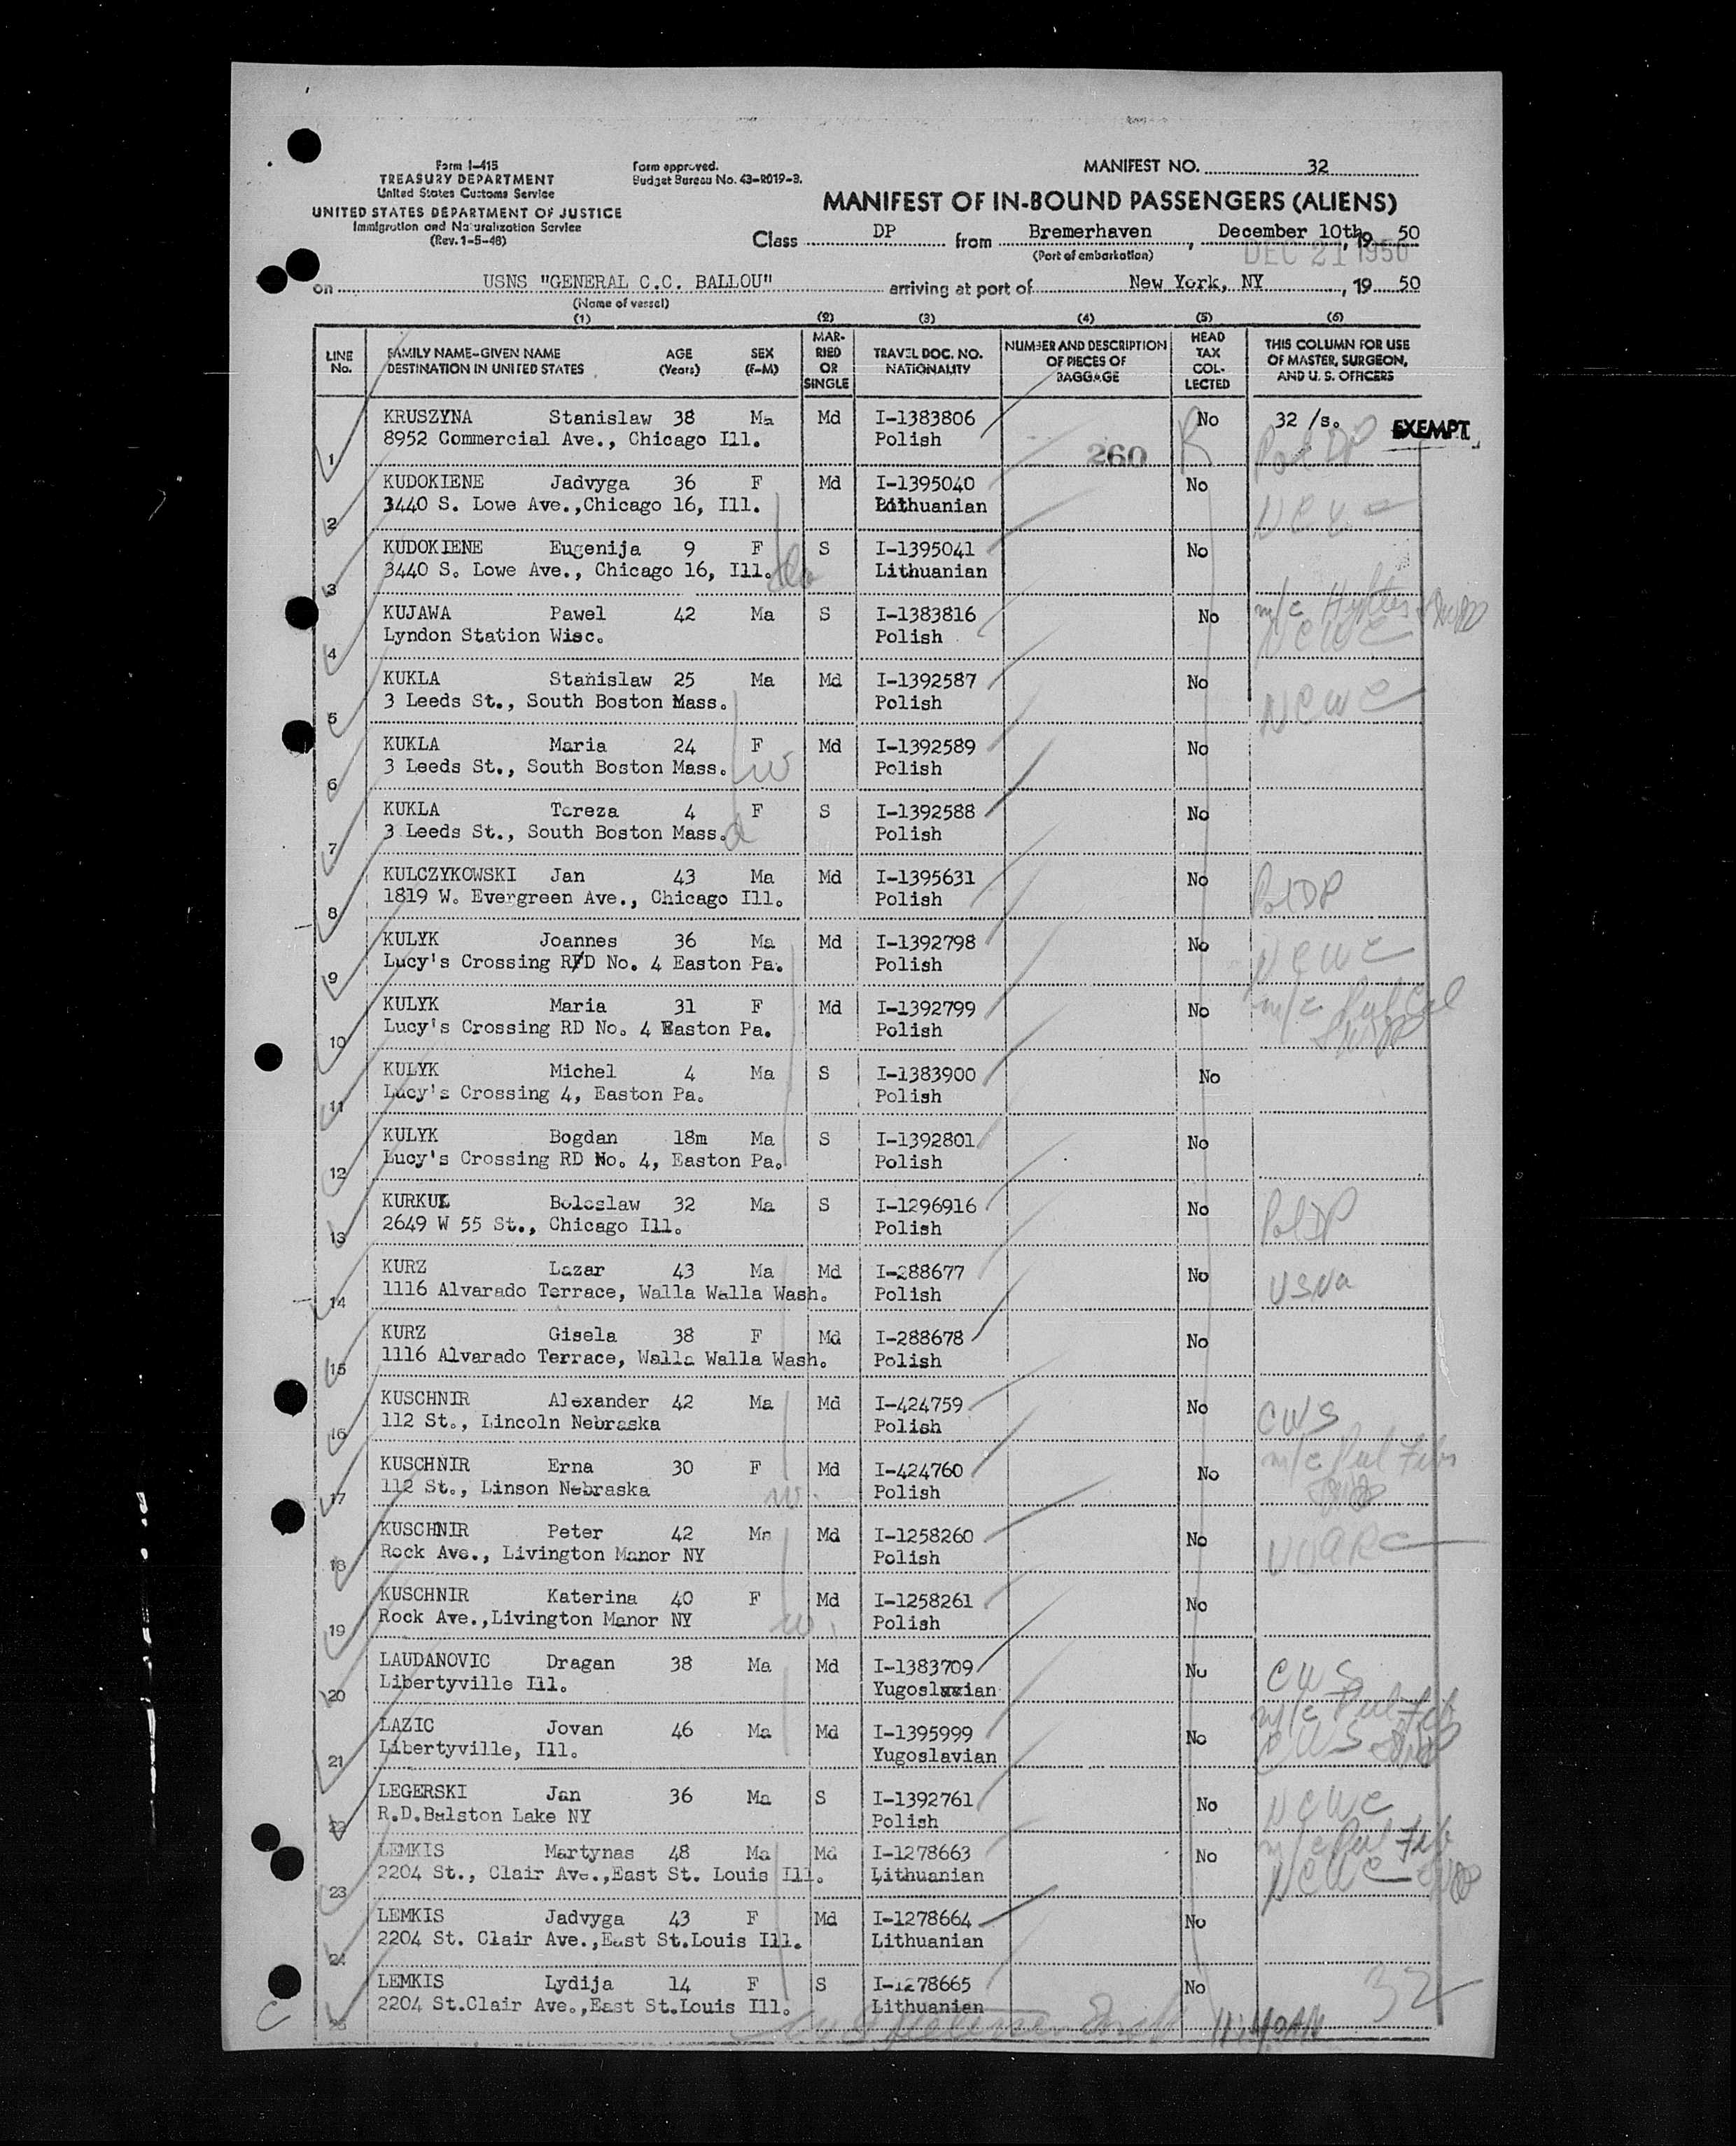 Form I-415
TREASURY DEPARTMENT
United States Customs Service
UNITED STATES DEPARTMENT OF JUSTICE
Immigration and Naturalization Service
(Rev. 1-5-48)
Form approved.
Budget Bureau No. 43-R019-3.
MANIFEST NO. 32
MANIFEST OF IN-BOUND PASSENGERS (ALIENS)
Class DP from Bremerhaven, December 10th, 19 50
(Port of embarkation)
DEC 21 1950
on USNS "GENERAL C.C. BALLOU" arriving at port of New York, NY, 19 50
(Name of vessel)
(1) (2) (3) (4) (5) (6)
LINE No. FAMILY NAME-GIVEN NAME DESTINATION IN UNITED STATES AGE (Years) SEX (F-M) MAR-RIED OR SINGLE TRAVEL DOC. NO. NATIONALITY NUMBER AND DESCRIPTION OF PIECES OF BAGGAGE HEAD TAX COL-LECTED THIS COLUMN FOR USE OF MASTER, SURGEON, AND U. S. OFFICERS
KRUSZYNA Stanislaw 38 Ma Md I-1383806 No 32 /s. EXEMPT
1 8952 Commercial Ave., Chicago Ill. Polish 260 R Pol DP
KUDOKIENE Jadvyga 36 F Md I-1395040 No
2 3440 S. Lowe Ave.,Chicago 16, Ill. Lithuanian
KUDOKIENE Eugenija 9 F S I-1395041 No
3 3440 S. Lowe Ave., Chicago 16, Ill. Lithuanian
KUJAWA Pawel 42 Ma S I-1383816 No m/c
4 Lyndon Station Wisc. Polish NCWC
KUKLA Stanislaw 25 Ma Md I-1392587 No
5 3 Leeds St., South Boston Mass. Polish NCWC
KUKLA Maria 24 F Md I-1392589 No
6 3 Leeds St., South Boston Mass. w Polish
KUKLA Tereza 4 F S I-1392588 No
7 3 Leeds St., South Boston Mass. d Polish
KULCZYKOWSKI Jan 43 Ma Md I-1395631 No
8 1819 W. Evergreen Ave., Chicago Ill. Polish Pol DP
KULYK Joannes 36 Ma Md I-1392798 No
9 Lucy's Crossing RFD No. 4 Easton Pa. Polish NCWC
KULYK Maria 31 F Md I-1392799 No m/c
10 Lucy's Crossing RD No. 4 Easton Pa. Polish
KULYK Michel 4 Ma S I-1383900 No
11 Lucy's Crossing 4, Easton Pa. Polish
KULYK Bogdan 18m Ma S I-1392801 No
12 Lucy's Crossing RD No. 4, Easton Pa. Polish
KURKUL Boleslaw 32 Ma S I-1296916 No
13 2649 W 55 St., Chicago Ill. Polish Pol DP
KURZ Lazar 43 Ma Md I-288677 No
14 1116 Alvarado Terrace, Walla Walla Wash. Polish USNA
KURZ Gisela 38 F Md I-288678 No
15 1116 Alvarado Terrace, Walla Walla Wash. Polish
KUSCHNIR Alexander 42 Ma Md I-424759 No
16 112 St., Lincoln Nebraska Polish CWS
KUSCHNIR Erna 30 F Md I-424760 No m/c Pul Fib
17 112 St., Linson Nebraska w. Polish
KUSCHNIR Peter 42 Ma Md I-1258260 No
18 Rock Ave., Livington Manor NY Polish
KUSCHNIR Katerina 40 F Md I-1258261 No
19 Rock Ave.,Livington Manor NY w. Polish
LAUDANOVIC Dragan 38 Ma Md I-1383709 No CWS
20 Libertyville Ill. Yugoslavian
LAZIC Jovan 46 Ma Md I-1395999 No m/c Pul Fib
21 Libertyville, Ill. Yugoslavian CWS
LEGERSKI Jan 36 Ma S I-1392761 No NCWC
22 R.D.Balston Lake NY Polish
LEMKIS Martynas 48 Ma Md I-1278663 No m/c Pul Fib
23 2204 St., Clair Ave.,East St. Louis Ill. Lithuanian NCWC
LEMKIS Jadvyga 43 F Md I-1278664 No
24 2204 St. Clair Ave.,East St.Louis Ill. Lithuanian
LEMKIS Lydija 14 F S I-1278665 No 32
25 2204 St.Clair Ave.,East St.Louis Ill. Lithuanian
11:40AM